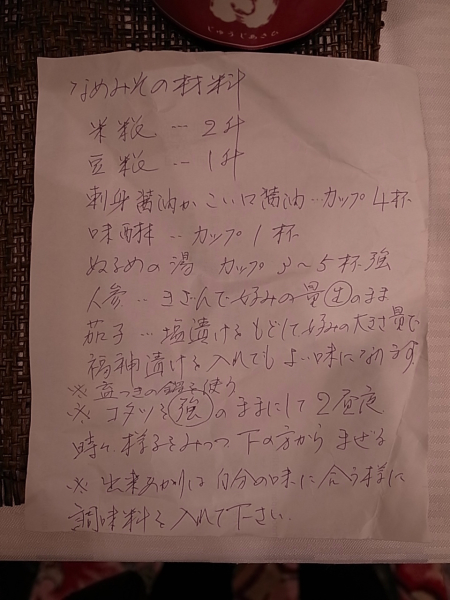 じゅうじあさひ
なめみその材料
米糀 … 2升
豆糀 … 1升
刺身醤油かこい口醤油‥カップ4杯
味醂 ‥ カップ1杯
ぬるめの湯 カップ3〜5杯強
人参 ‥ きざんで好みの量 生のまま
茄子 … 塩漬けをもどして好みの大きさ量で
福神漬けを入れてもよい味になります
※蓋つきの鍋を使う
※コタツを強のままにして2昼夜
時々様子をみつつ下の方からまぜる
※出来あがりは自分の味に合う様に
調味料を入れて下さい.